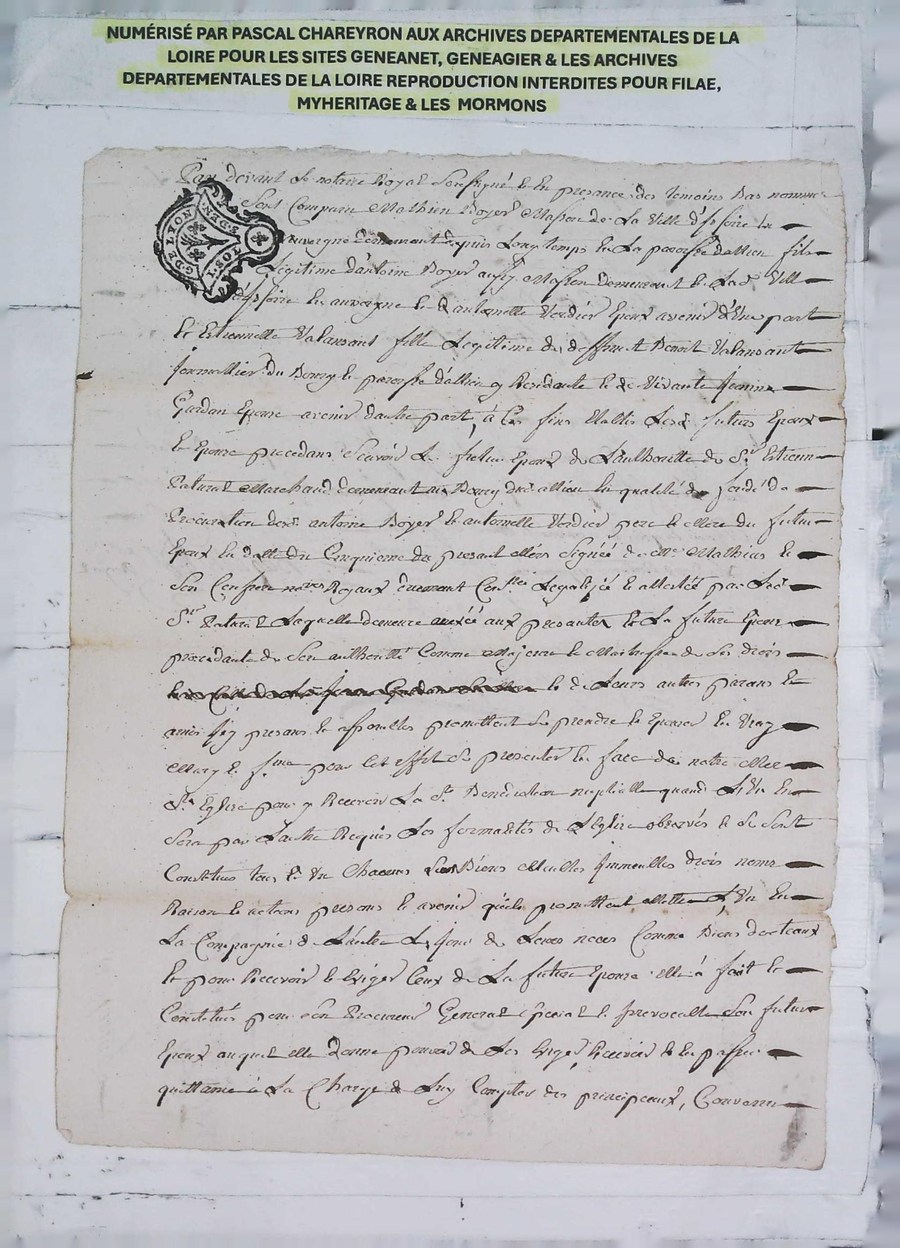 NUMÉRISÉ PAR PASCAL CHAREYRON AUX ARCHIVES DEPARTEMENTALES DE LA
LOIRE POUR LES SITES GENEANET, GENEAGIER & LES ARCHIVES
DEPARTEMENTALES DE LA LOIRE REPRODUCTION INTERDITES POUR FILAE,
MYHERITAGE & LES MORMONS
Par devant Le notaire Royal Soussigné Et En presance des temoins Bas nommes
Sont Comparu Mathieu Boyer Masson de La Ville d'issoire En
auvergne demeurant depuis Long temps En La paroisse d'allieu fils
Legitime d'antoine Boyer aussy Masson demeurant En La de Ville
d'issoire En auvergne Et d'antoinette Verdier Epoux avenir d'Une part
Et Estiennette Valansant fille Legitime de deffunct Benoit Valansant
du Bourg Et paroisse d'allieu y Residante Et de Vivante Jeanne
Epouse avenir d'autre part, à Ces fins Lesd futurs Epoux
Et Epouse procedans Scavoir Le futur Epoux de L'authoritté de Sr Estienne
Marchand demeurant au Bourg dud allieu En qualité de fondé de
Procuration desd antoine Boyer Et antoinette Verdier pere Et Mere du futur
Epoux En datte du Cinquieme du presant Mois Signée de Me Mathias Et
Son Confrere nores Royaux Legalizée Et attestée par Led
Sr Laquelle demeure anexée aux presantes Et La future Epouse
procedante de Son authoritté Comme Majeure Et Maitresse de Ses droits
Et de Leurs autres parans Et
amis Icy presans Et assemblés promettent Se prendre Et Epouser En Vray
Mary Et fme pour Cet Effet Se presenter En face de notre Mere
Ste Eglise pour y Recevoir La Ste Benediction nuptialle quand L'Un En
Sera par L'autre Requis Les formalités de L'Eglise observés Et Se Sont
Constitués tous Et Un Chacuns Leurs Biens Meubles Immeubles droits noms
Raison Et actions presans Et avenir qu'ils promettent Mettre L'Un En
La Compagnie de L'autre Le Jour de Leurs noces Comme Biens dortaux
Et pour Recevoir Et Exiger Ceux de La future Epouse Elle à fait Et
Constitué pour Son Procureur General Special Et Irrevocable Son futur
Epoux auquel Elle donne pouvoir de Les Exiger, Recevoir Et En passer
quittance à La Charge de Luy Compter des principeaux, Convenu